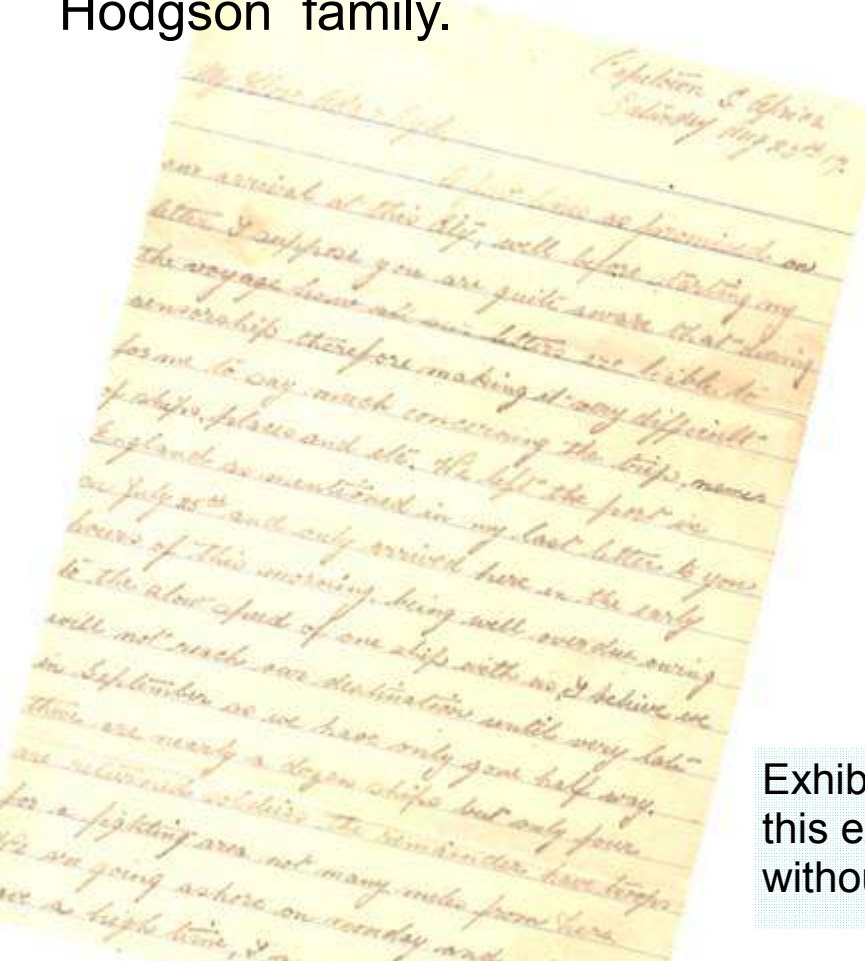 Hodgson family.
Capetown S Africa
Saturday Aug 25th 17.
My Dear
as promised on
our arrival at this City, well before starting my
letter I suppose you are quite aware that during
the voyage home all our letters are lible to
censorship therefore making it very difficult
for me to say much concerning the trip, names
of ships, places and etc. We left the port in
England as mentioned in my last letter to you
on July 25th and only arrived here in the early
hours of this morning being well overdue owing
to the slow speed of one ship with us, I believe we
will not reach our destination until very late
in September as we have only gone half way.
there are nearly a dozen ships but only four
are returned soldiers the remainder have troops
for a fighting area not many miles from here
We are going ashore on monday and
have a high time, I
Exhib
this e
withou